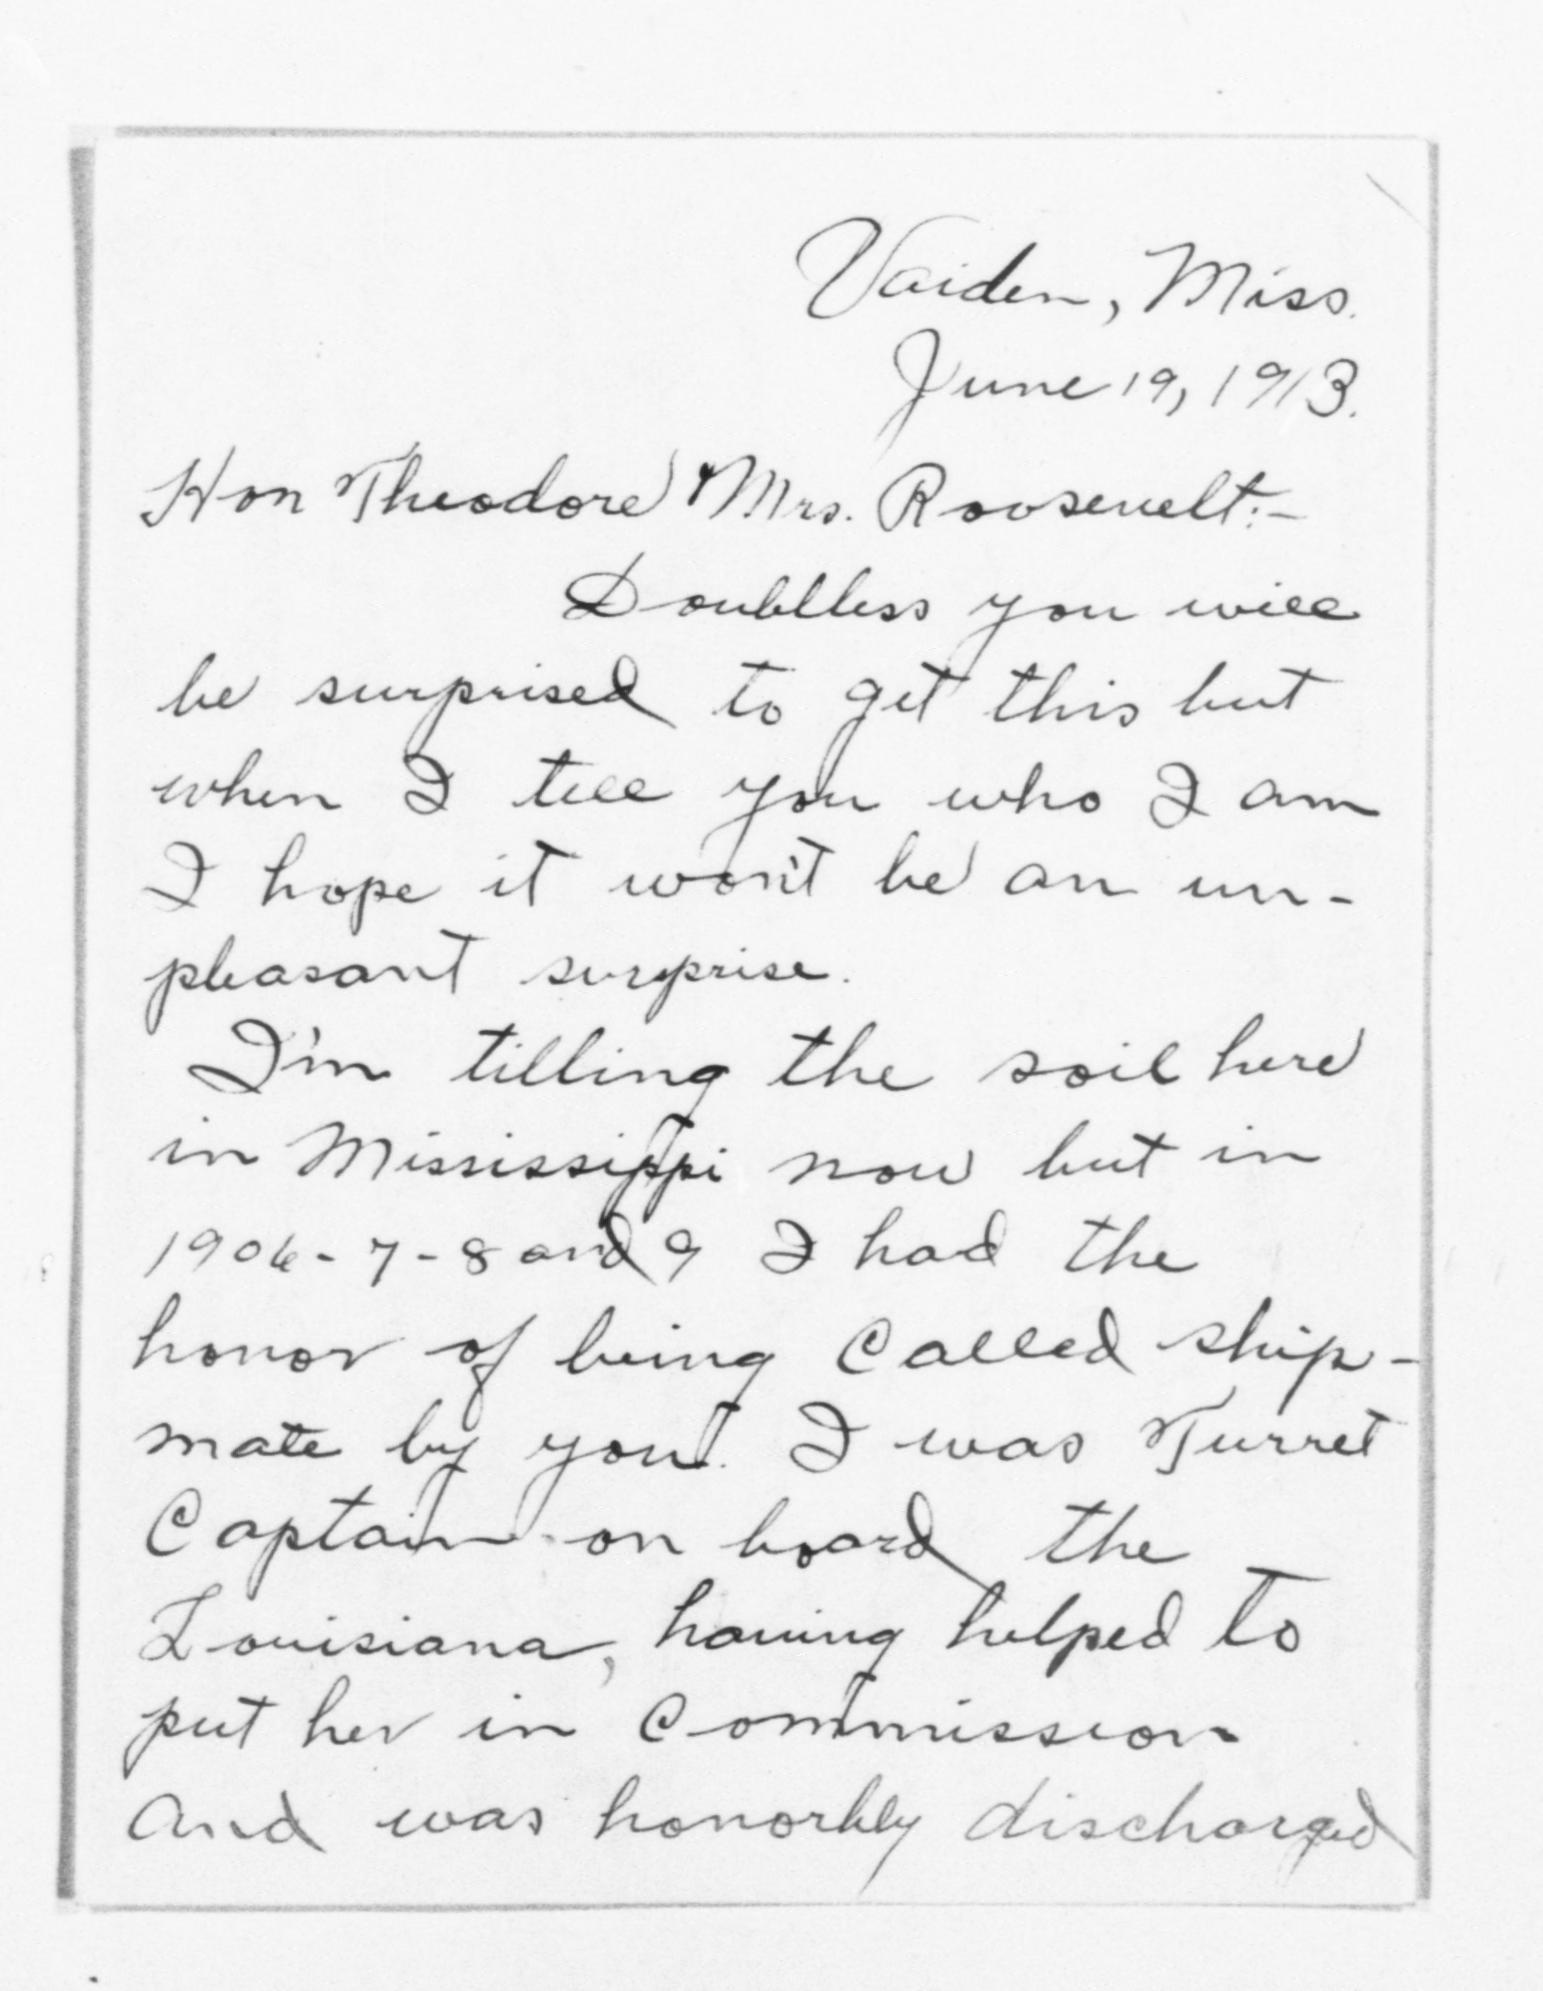 Vaiden, Miss.
June 19, 1913.
Hon Theodore & Mrs. Roosevelt:-
Doubtless you will
be surprised to get this but
when I tell you who I am
I hope it won't be an un-
pleasant surprise.
I'm tilling the soil here
in Mississippi now but in
1906-7-8 and 9 I had the
honor of being Called ship-
mate by you. I was Turret
Captain on board the
Louisiana, having helped to
put her in Commission
and was honorbly discharged